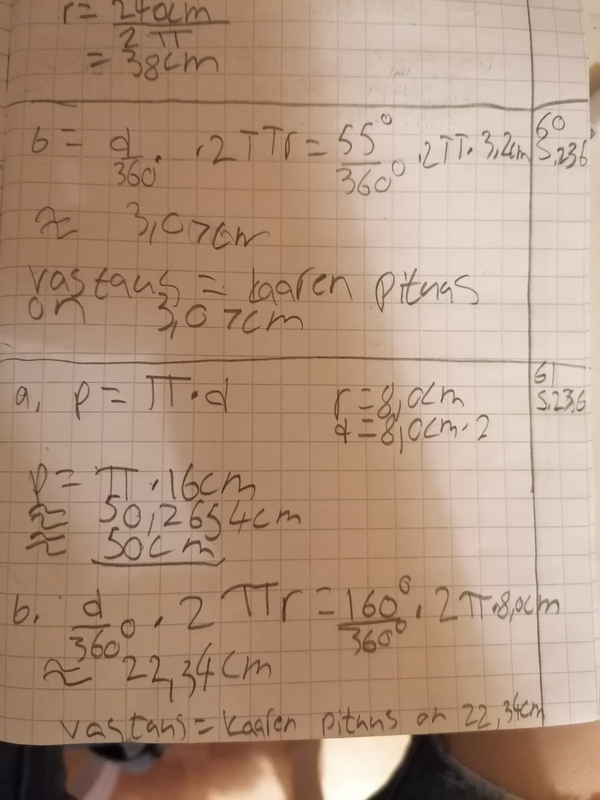 r = 240cm / 2π
= 38cm
60
s.236
b = d/360° · 2πr = 55°/360° · 2π · 3,2cm
≈ 3,07cm
vastaus = kaaren pituus
on 3,07cm
61
s.236
a, p = π · d
r = 8,0cm
d = 8,0cm · 2
p = π · 16cm
≈ 50,2654cm
≈ 50cm
b. d/360° · 2πr = 160°/360° · 2π · 8,0cm
≈ 22,34cm
vastaus = kaaren pituus on 22,34cm